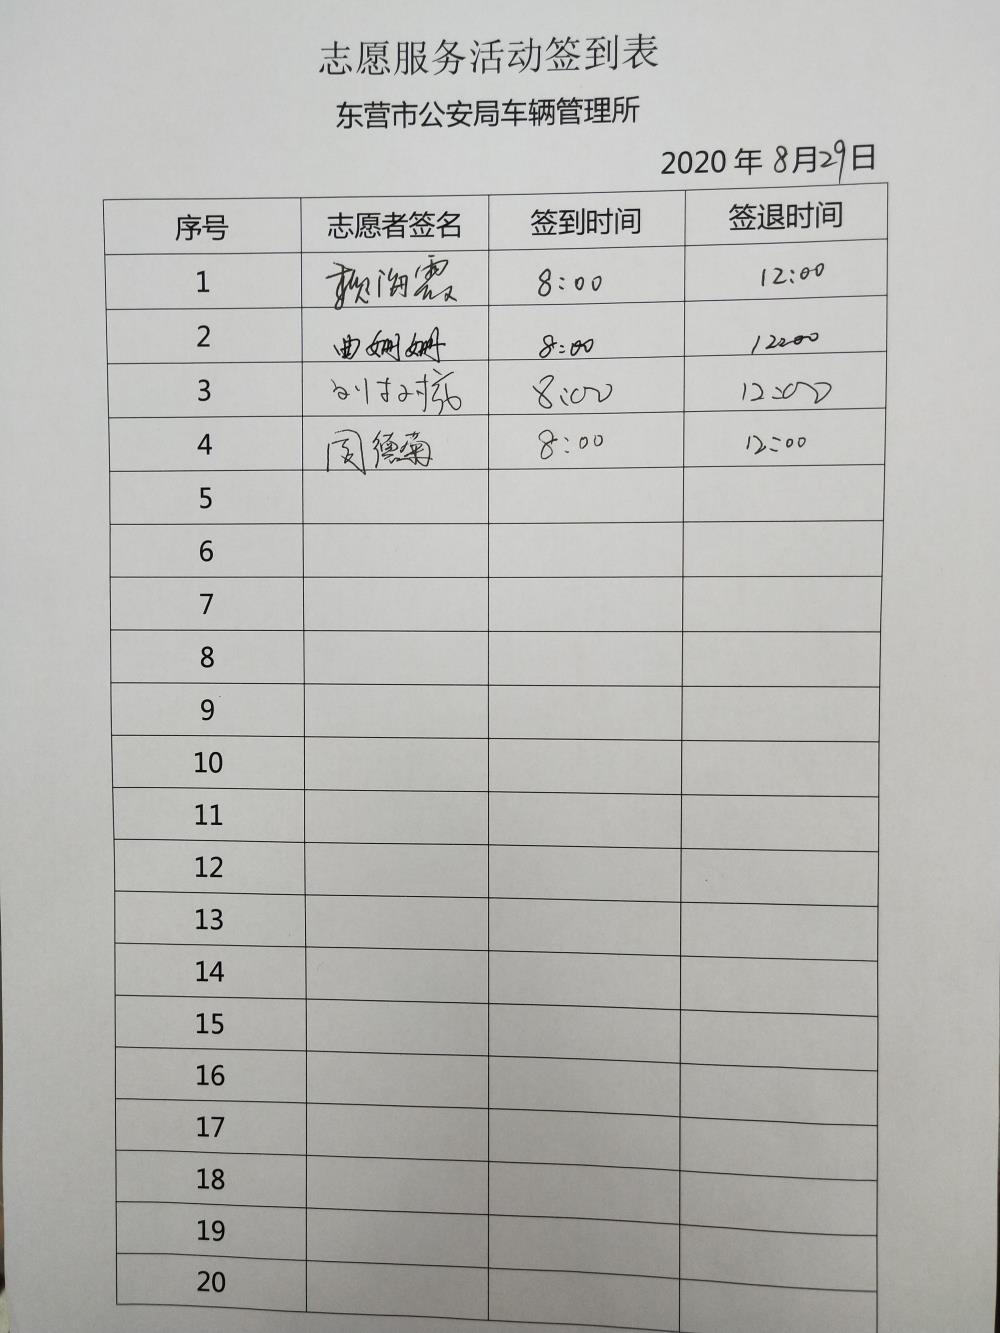 志愿服务活动签到表
东营市公安局车辆管理所
2020 年 8月29日
序号 志愿者签名 签到时间 签退时间
1 海霞 8:00 12:00
2 曲姗姗 8:00 12:00
3 8:00 12:00
4 周德菊 8:00 12:00
5
6
7
8
9
10
11
12
13
14
15
16
17
18
19
20